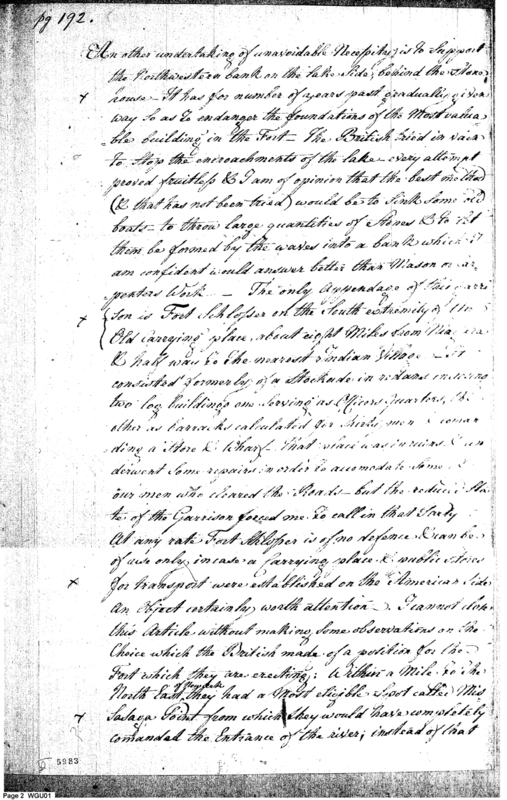 pg 192.
An other undertaking of unavoidable Necessity, is to Support
the Northwestern bank on the lake Side, behind the Stone
house - It has for number of years past gradually given
way so as to endanger the foundations of the Most valua
ble building in the Fort - The British tried in vain
to Stop the encroachments of the lake - every attempt
proved fruitless & I am of opinion that the best method
(& that has not been tried) would be to Sink Some old
boats - to throw large quantities of Stones & to let
them be formed by the waves into a bank which I
am confident would answer better than Mason or Car
penters Work. - The only Appendage of this Garri
son is Fort Schlosser on the South extremity of the
Old Carrying place, about eight Miles from Niagara
& half way to the nearest Indian Village
consisted formerly of a Stockade in redans
two log buildings one Serving as Officers quarters, the
other as barracks calculated for thirty men &
ding a Store & Wharf - that place was in ruins & un
derwent Some repairs in order to accomodate Some of
our men who cleared the Roads - but the reduced Sta
te of the Garrison forced me to call in that Party
At any rate Fort Schlosser is of no defence & can be
of use only in case a Carrying place & public Stores
for transport were established on the American Side
An Object certainly worth attention - I cannot close
this Article without making Some observations on the
Choice which the British made of a position for the
Fort which they are erecting: Within a Mile to the
North East, they had a Most eligible Spot called Mis
Sasaga Point from which they would have completely
comanded the Entrance of the river; instead of that
5983
Page 2 WGU01